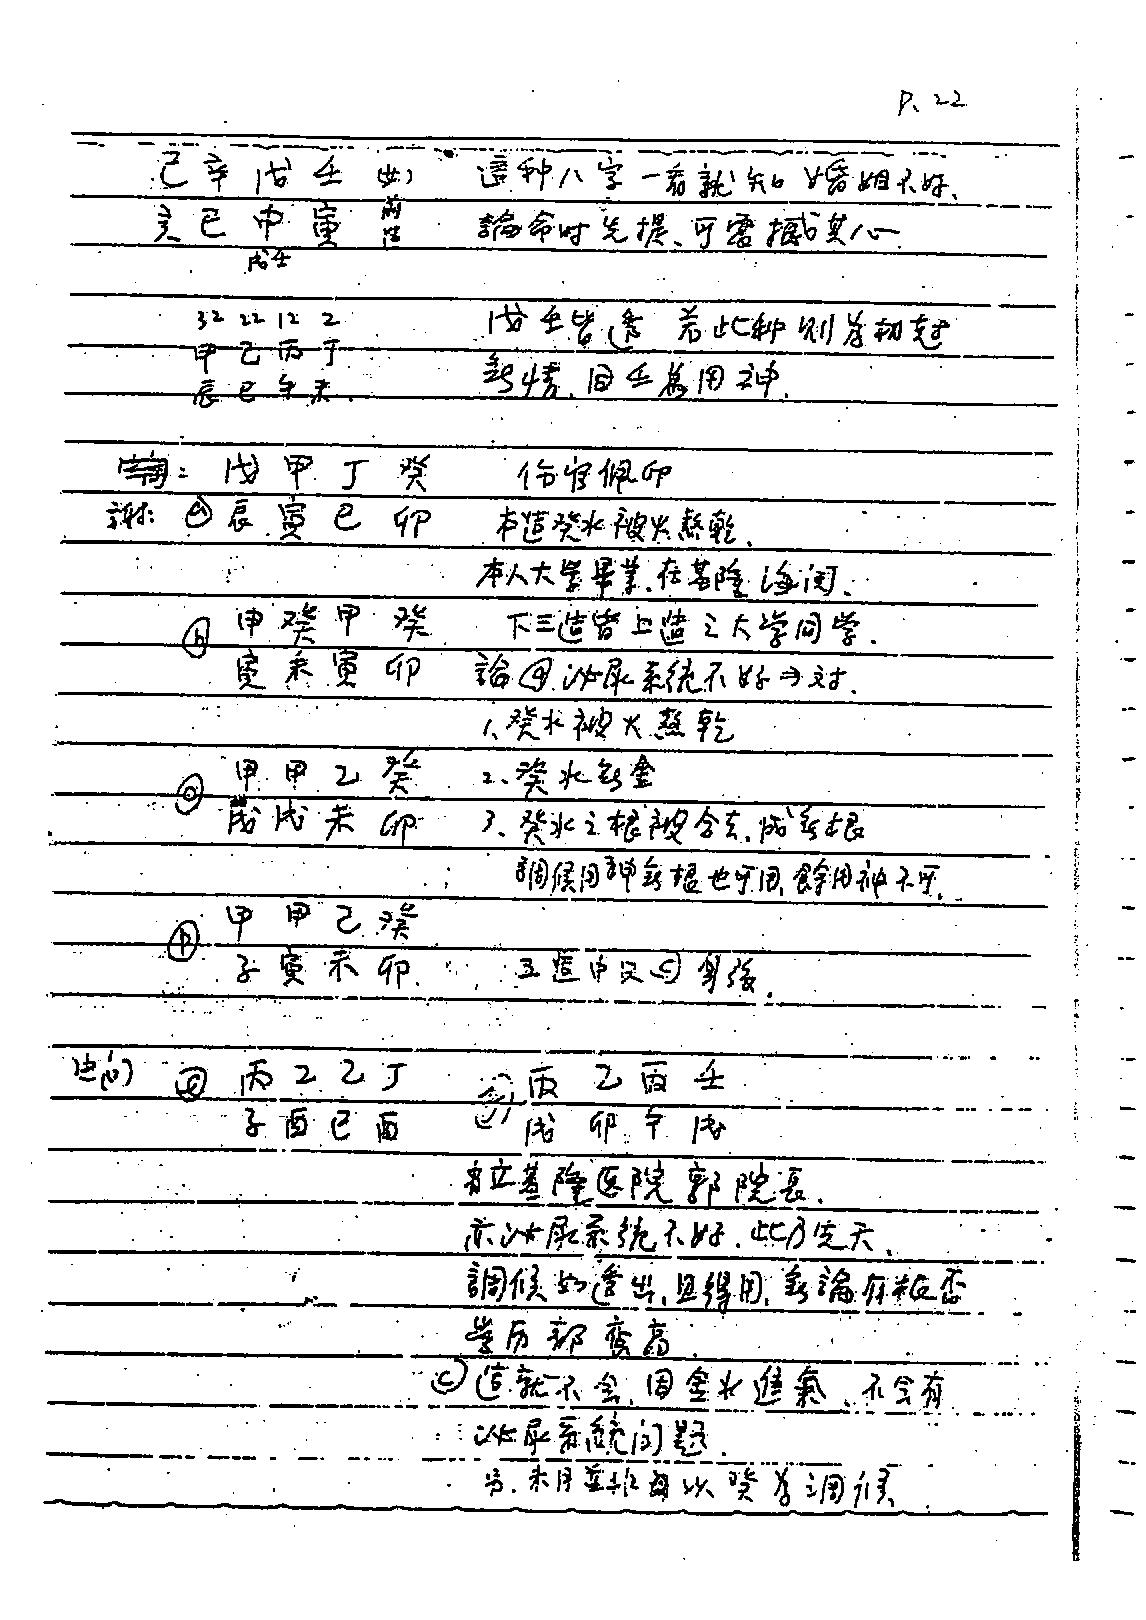 P. 22
己辛戊壬 這种八字一看就知婚姻不好.
亥巳申寅 論命时先提、可震撼其心
戊壬
32 22 12 2 戊壬皆透 若此种則為劫尅
甲乙丙丁 無情、因壬為用神.
辰巳午未.
戊甲丁癸 伤官佩印
謝: 辰寅巳卯 本造癸水被火熬乾.
本人大学畢業、在基隆海関.
b 甲癸甲癸 下三造皆上造之大学同学.
寅未寅卯 論 a 泌尿系統不好→对.
1、癸水被火熬乾
甲甲乙癸 2、癸水無金
戌戌未卯 3、癸水之根被合去、成無根
調候用神無根也可用、餘用神不可.
甲甲乙癸
子寅未卯. 五造中又 c 身強.
丙乙乙丁 丙乙丙壬
子酉巳酉 戌卯午戌
省立基隆医院郭院長.
亦泌尿系統不好.此乃先天.
調候如透出、且得用、無論有根否
学历都蛮高.
c 造就不会、因金水進氣、不会有
泌尿系統问题.
另、未月並非每以癸為調候.